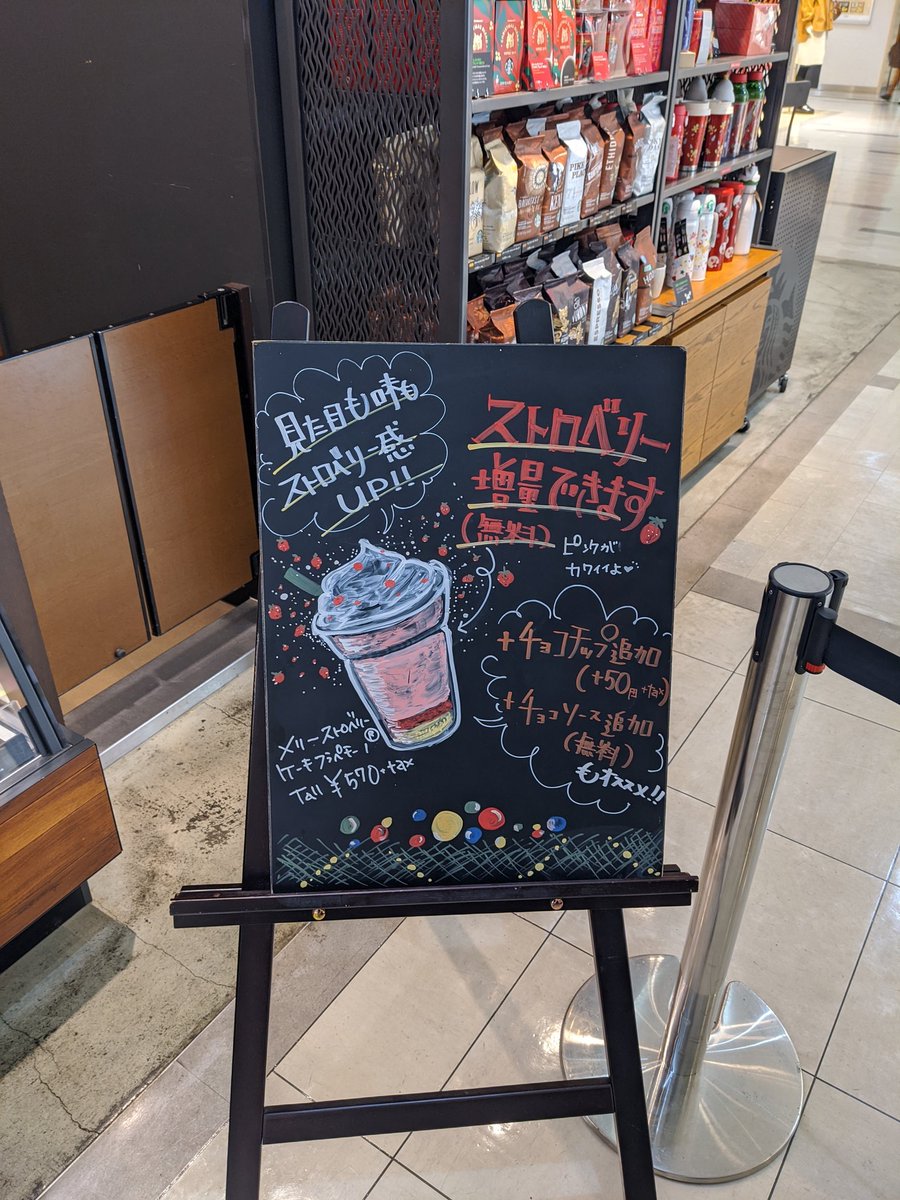 見た目も味も
ストロベリー感
UP!!
ストロベリー
増量できます
(無料)
ピンクが
カワイイよ♡
+チョコチップ追加
(+50円+tax)
+チョコソース追加
(無料)
もオススメ!!
メリーストロベリー
ケーキフラペチーノ®
Tall ¥570+tax
PIKE
PLACE
ETHIOPIA